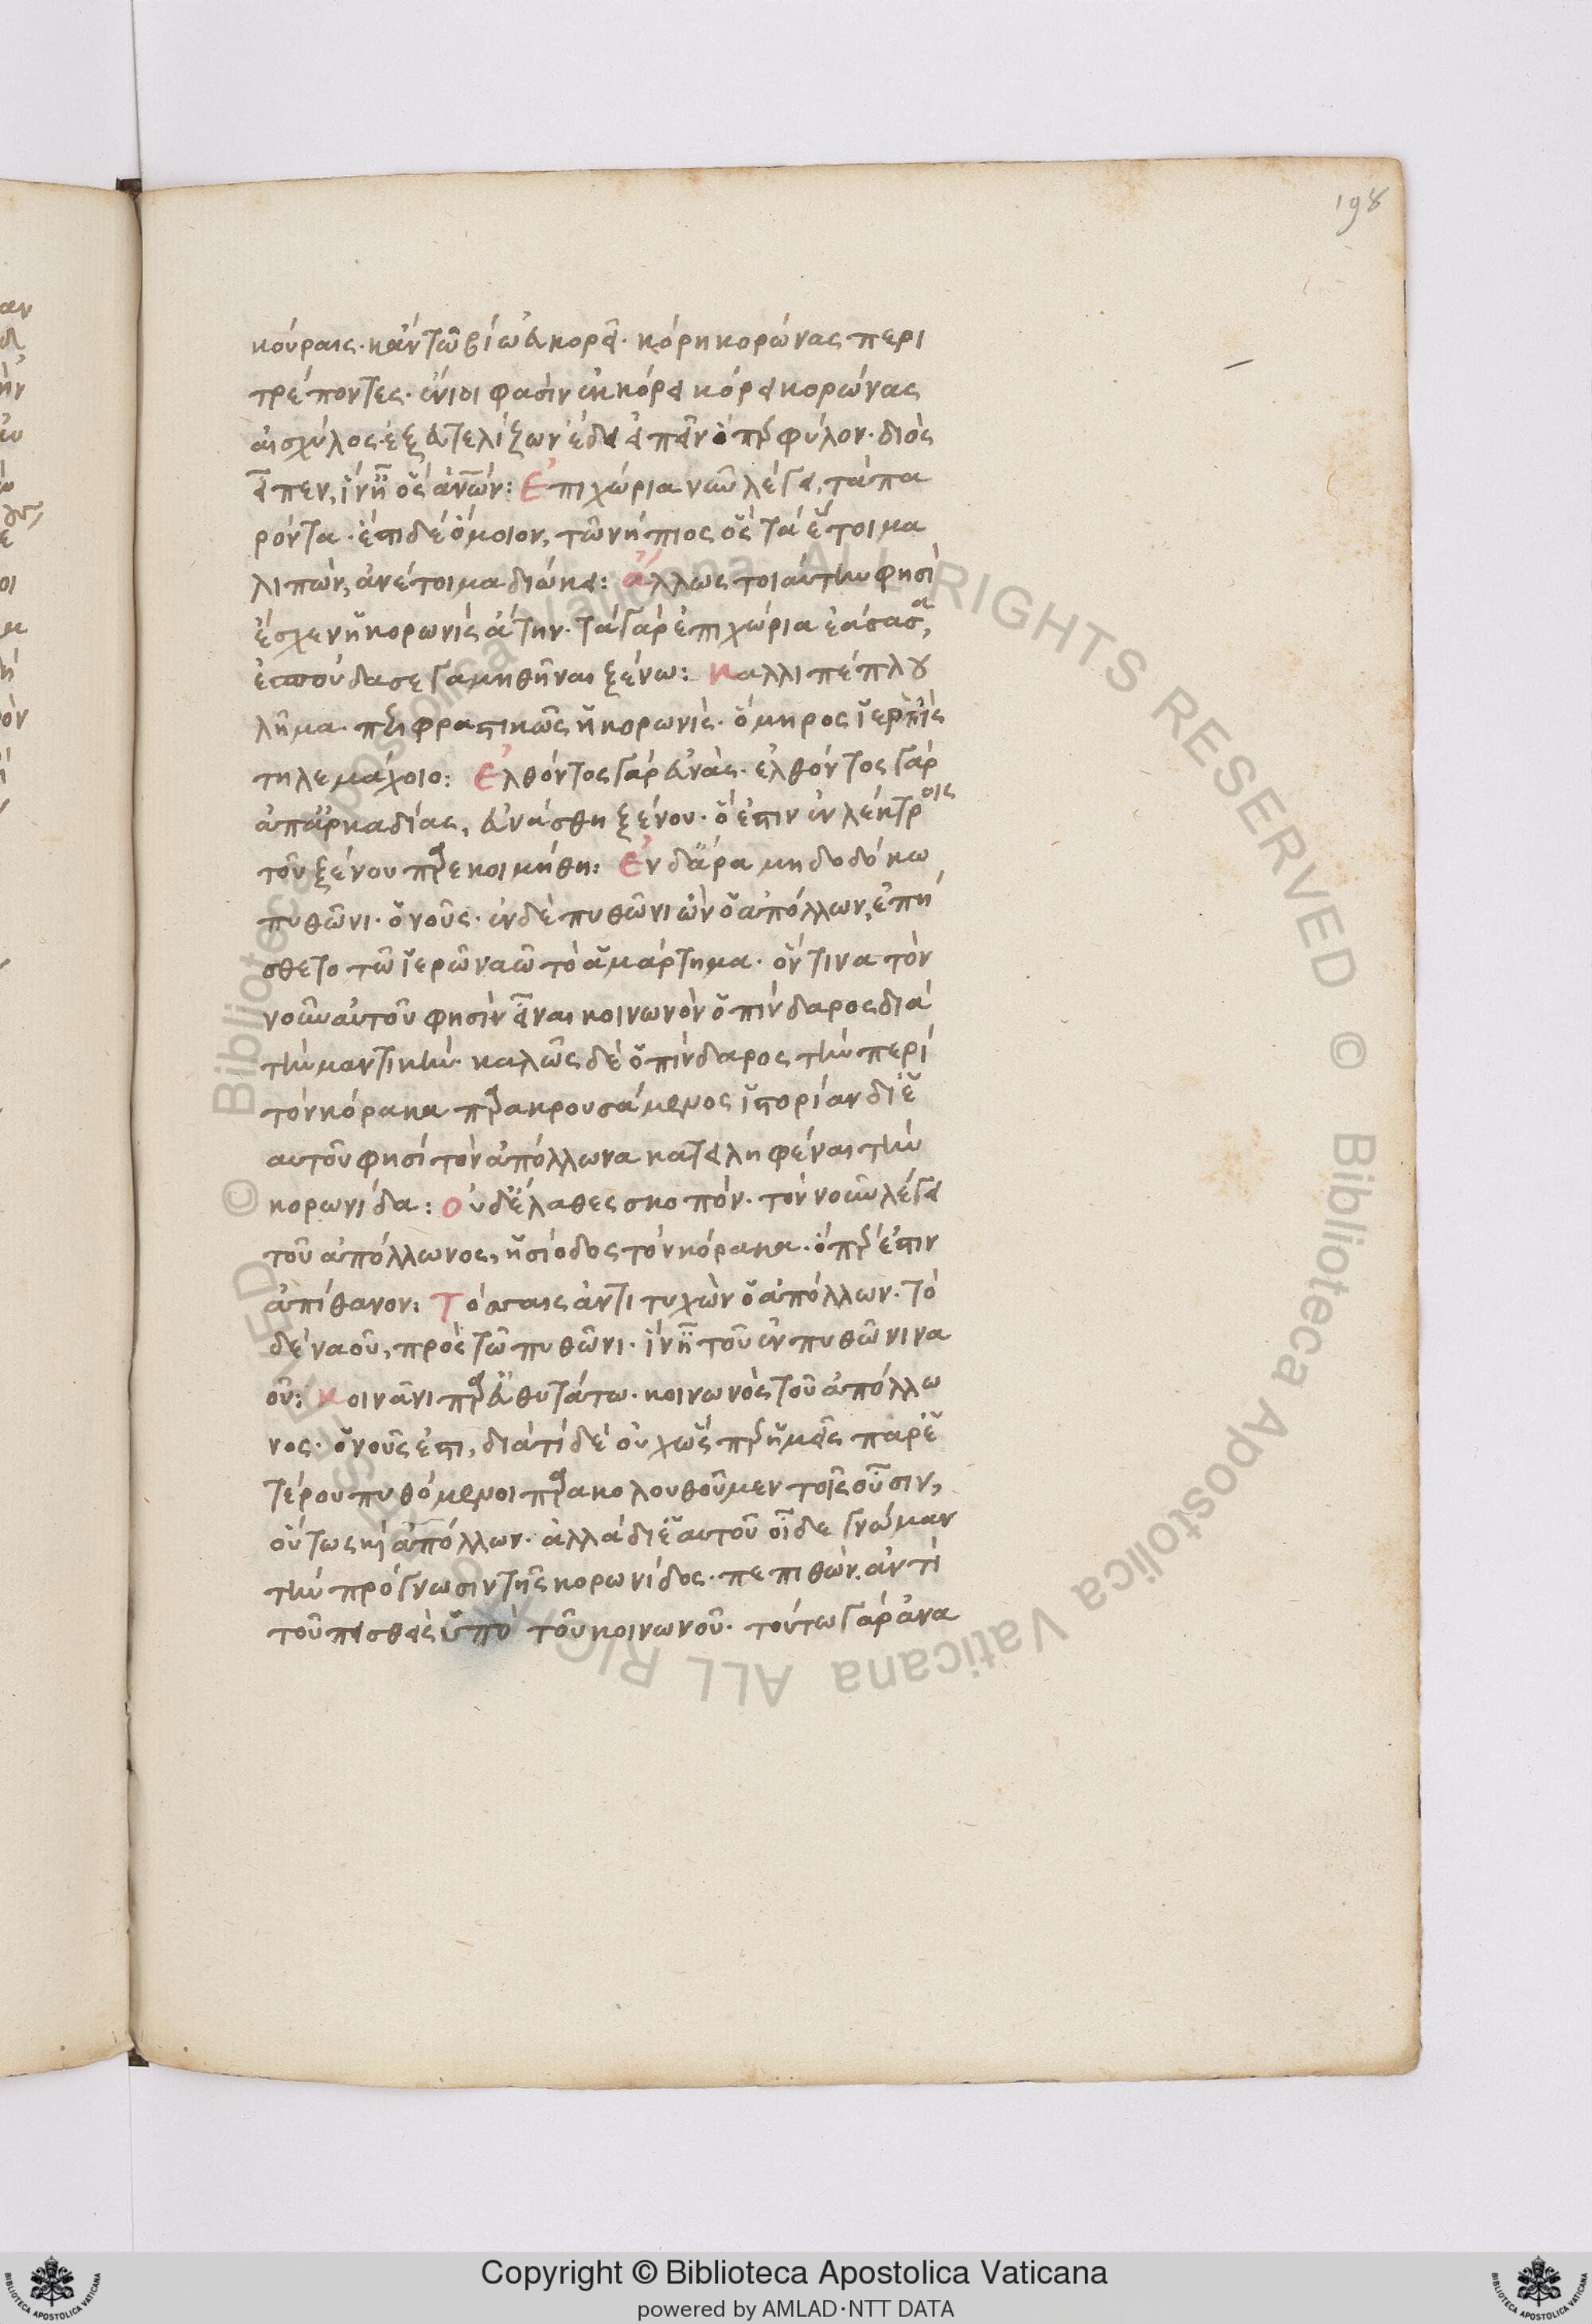 198
κούραις· κἀν τῶ βίω ἐκκορεῖ· κόρη κορώνας περι
τρέποντες· ἔνιοι φασὶν ἐκκόρει κόρει κορώνας
αἰσχύλος· ἐξευτελίζων
ἐπιχώρια νῦν λέγει, τὰ πα
ρόντα· ἔστι δὲ ὅμοιον, τῶ νήπιος ὃς τὰ ἕτοιμα
λιπὼν, ἀνέτοιμα διώκει: ἄλλως τοιαύτην φησὶ
ἔσχεν ἡ κορωνὶς ἄτην· τὰ γὰρ ἐπιχώρια ἐάσασα,
ἐσπούδασε γαμηθῆναι ξένω: καλλιπέπλου
λῆμα· περιφραστικῶς ἡ κορωνίς· ὅμηρος ἱερὴ ἲς
τηλεμάχοιο: ἐλθόντος γὰρ εὐνάς· ἐλθόντος γὰρ
ἀπ' ἀρκαδίας, εὐνάσθη ξένου· ὅ ἐστιν ἐν λέκτροις
τοῦ ξένου παρεκοιμήθη: ἐν δ' ἄρα μηλοδόκω
πυθῶνι· ὁ νοῦς· ἐν δὲ πυθῶνι ὢν ὁ ἀπόλλων, ἐπή
σθετο τῶ ἱερῶ ναῶ τὸ ἁμάρτημα· ὅντινα τὸν
νοῦν αὐτοῦ φησὶν εἶναι κοινωνὸν ὁ πίνδαρος διὰ
τὴν μαντικήν· καλῶς δὲ ὁ πίνδαρος τὴν περὶ
τὸν κόρακα παρακρουσάμενος ἱστορίαν δι' ἑ
αυτοῦ φησὶ τὸν ἀπόλλωνα κατειληφέναι τὴν
κορωνίδα: οὐδ' ἔλαθε σκοπόν· τὸν νοῦν λέγει
τοῦ ἀπόλλωνος, ἡσίοδος τὸν κόρακα· ὅπερ ἐστὶν
ἀπίθανον: τόσσαις ἀντὶ τυχὼν ὁ ἀπόλλων· τὸ
δὲ ναοῦ, πρὸς τῶ πυθῶνι· ἵν' ἦ τοῦ ἐν πυθῶνι να
οῦ: κοινᾶνι παρ' εὐθυτάτω· κοινωνὸς τοῦ ἀπόλλω
νος· ὁ νοῦς ἐστι, διὰ τί δὲ οὐχ ὥσπερ ἡμεῖς παρ' ἑ
τέρου πυθόμενοι παρακολουθοῦμεν τοῖς οὖσιν,
οὕτως καὶ ἀπόλλων· ἀλλὰ δι' ἑαυτοῦ οἶδε γνώμαν
τὴν πρόγνωσιν τῆς κορωνίδος· πεπιθών· ἀντὶ
τοῦ πεισθεὶς ὑπὸ τοῦ κοινωνοῦ· τούτω γὰρ ἀνα
© Biblioteca Apostolica Vaticana ALL RIGHTS RESERVED
© Biblioteca Apostolica Vaticana ALL RIGHTS RESERVED
Copyright © Biblioteca Apostolica Vaticana
powered by AMLAD·NTT DATA